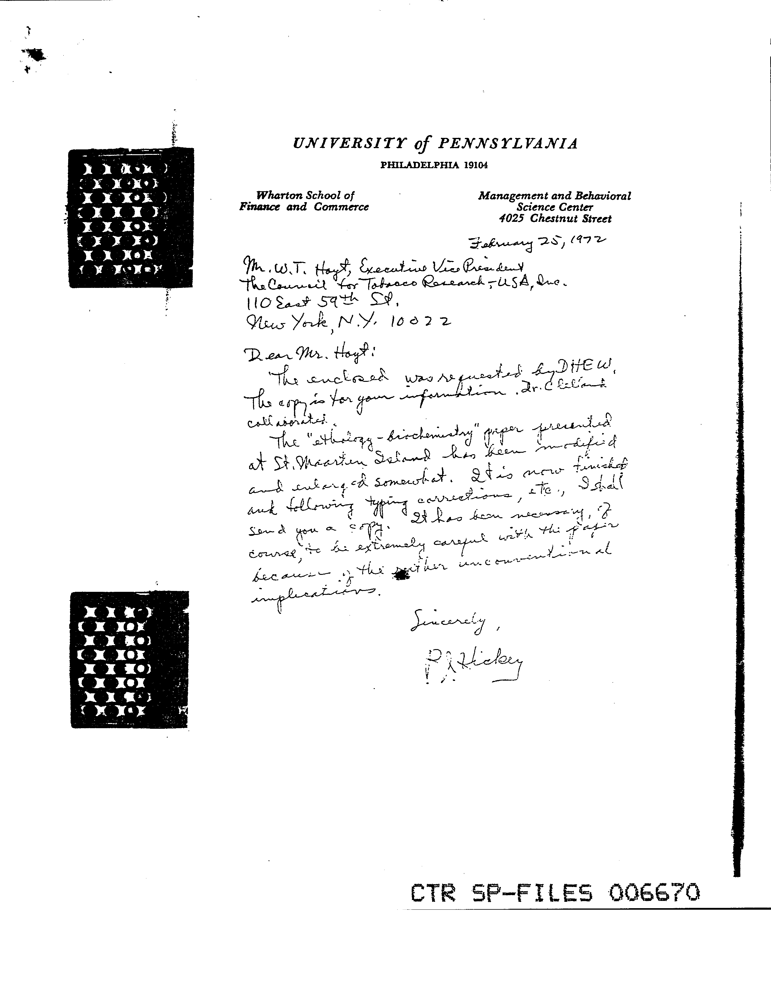 UNIVERSITY of PENNSYLVANIA
PHILADELPHIA 19104
Wharton School of
Finance and Commerce
Management and Behavioral
Science Center
4025 Chestnut Street
February 25, 1972
Mr. W.T. Hoyt, Executive Vice President
The Council for Tobacco Research-USA, Inc.
110 East 59th St.
New York, N.Y. 10022
Dear Mr. Hoyt:
The enclosed was requested by DHEW.
The copy is for your information. Dr. Clelland
collaborated.
The "ethology-biochemistry" paper presented
at St. Maarten Island has been modified
and enlarged somewhat. It is now finished
and following typing corrections, etc., I shall
send you a copy. It has been necessary, of
course, to be extremely careful with the paper
because of the rather unconventional
implications.
Sincerely,
RJ Hickey
CTR SP-FILES 006670